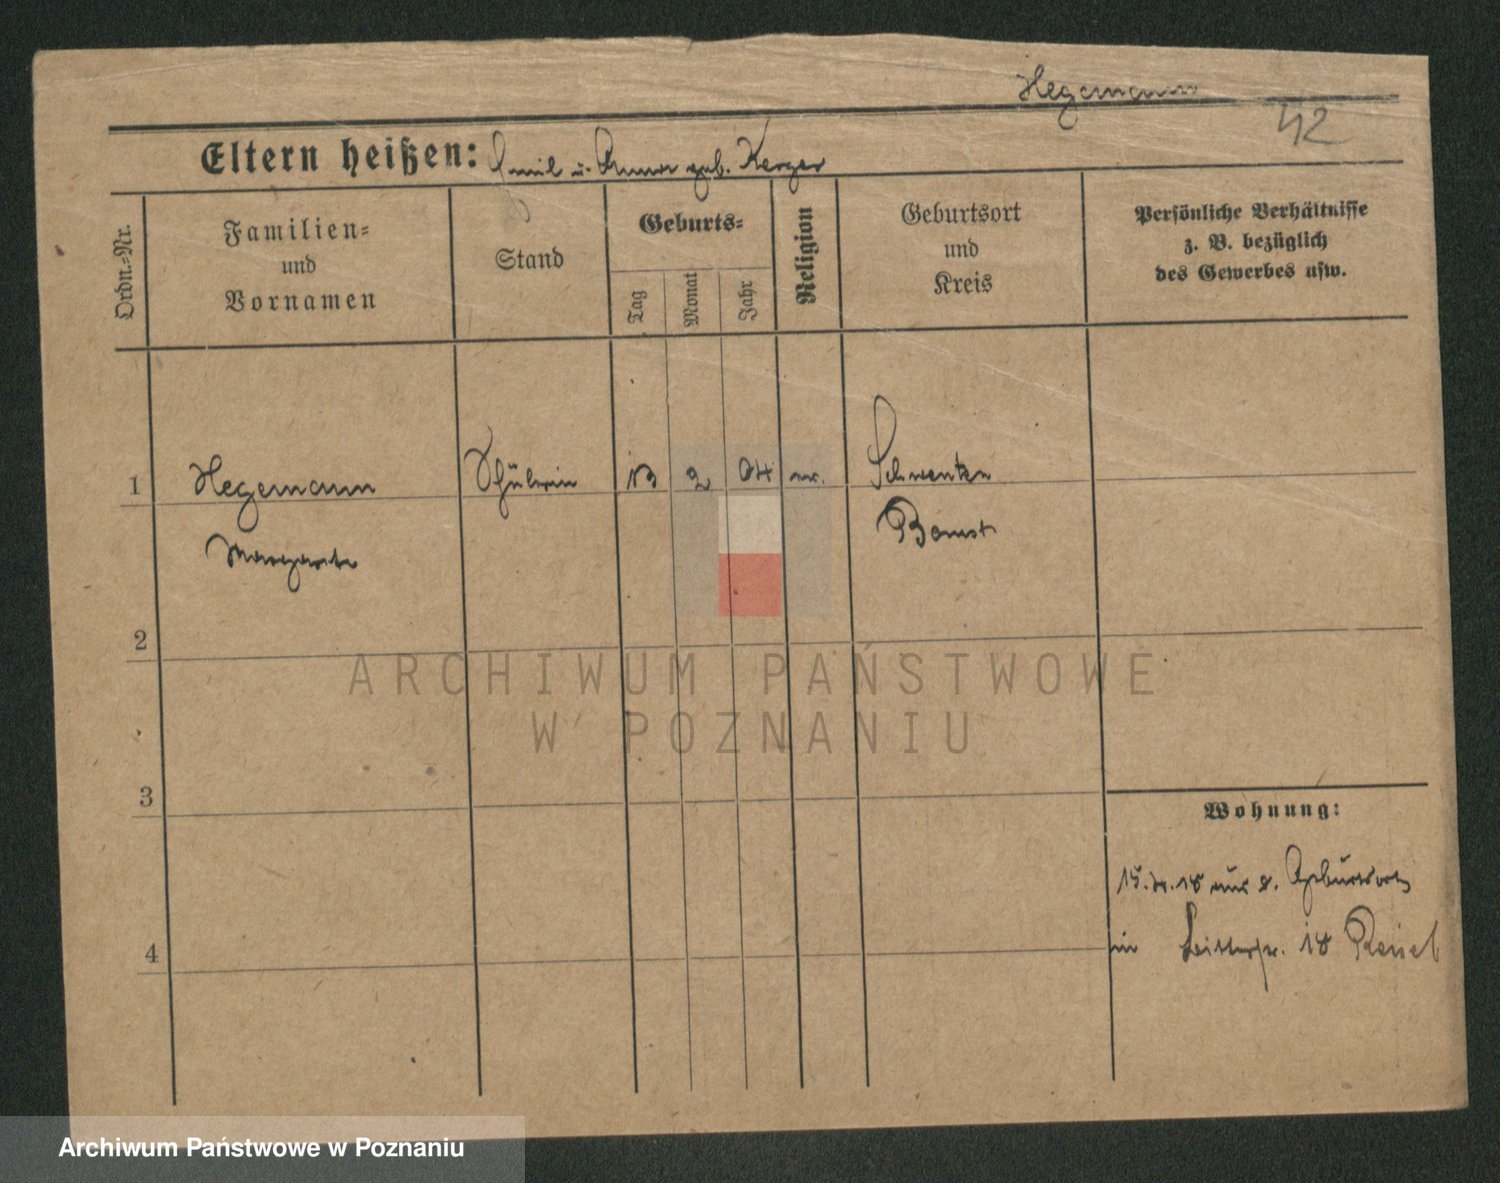 Hegemann
42
Eltern heißen: Emil u. Anna geb. Kerger
Ordn.-Nr.
Familien-
und
Vornamen
Stand
Geburts-
Tag
Monat
Jahr
Religion
Geburtsort
und
Kreis
Persönliche Verhältnisse
z. B. bezüglich
des Gewerbes usw.
1 Hegemann Schülerin 13 2 04 Schwenten
Margarete Bomst
2
3
4
Wohnung:
15. 18 aus d. Geburtsort
in 18
ARCHIWUM PAŃSTWOWE
W POZNANIU
Archiwum Państwowe w Poznaniu